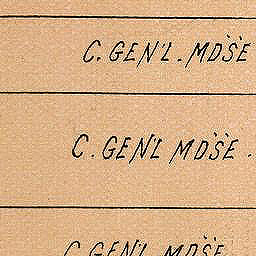 C. GEN'L. MDSE
C. GEN'L MDSE.
C. GEN'L MDSE